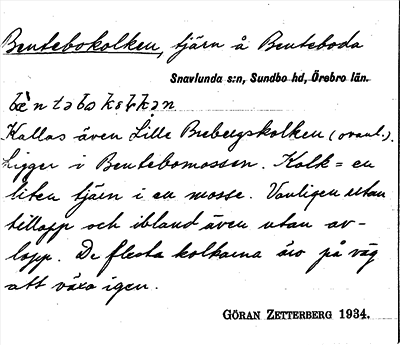 Bentebokolken, tjärn å Benteboda
Snavlunda s:n, Sundbo hd, Örebro län.
Kallas även Lille Brebergskolken (ovanl.).
Ligger i Bentebomossen. Kolk = en
liten tjärn i en mosse. Vanligen utan
tillopp och ibland även utan av-
lopp. De flesta kolkarna äro på väg
att växa igen.
GÖRAN ZETTERBERG 1934.